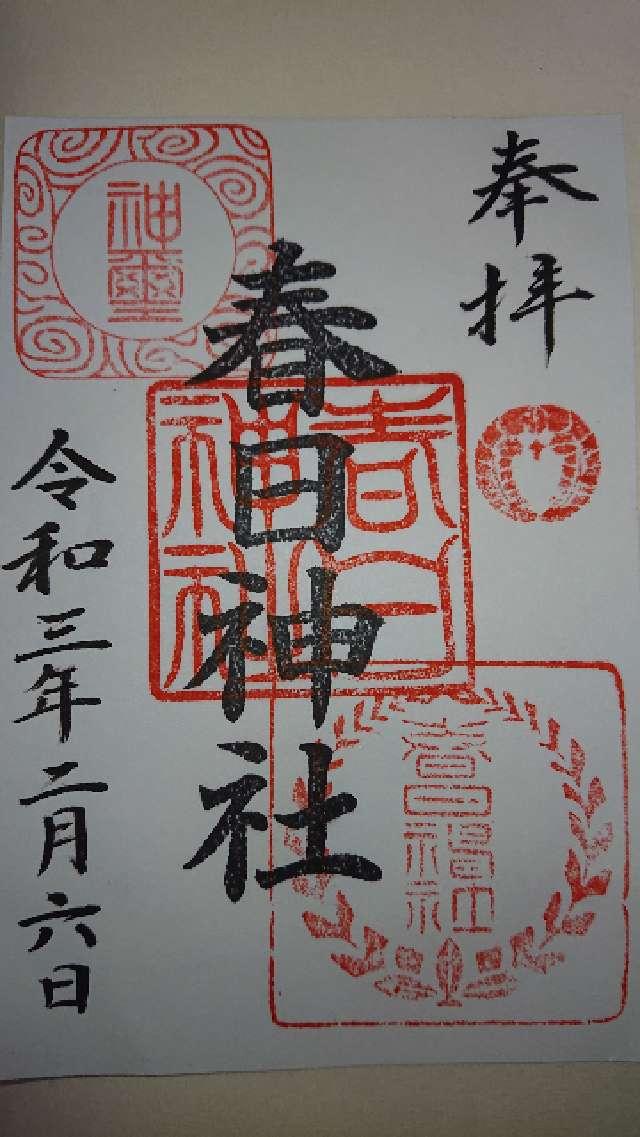 奉拝
春日神社
令和三年二月六日
神璽
春日神社
春日神社